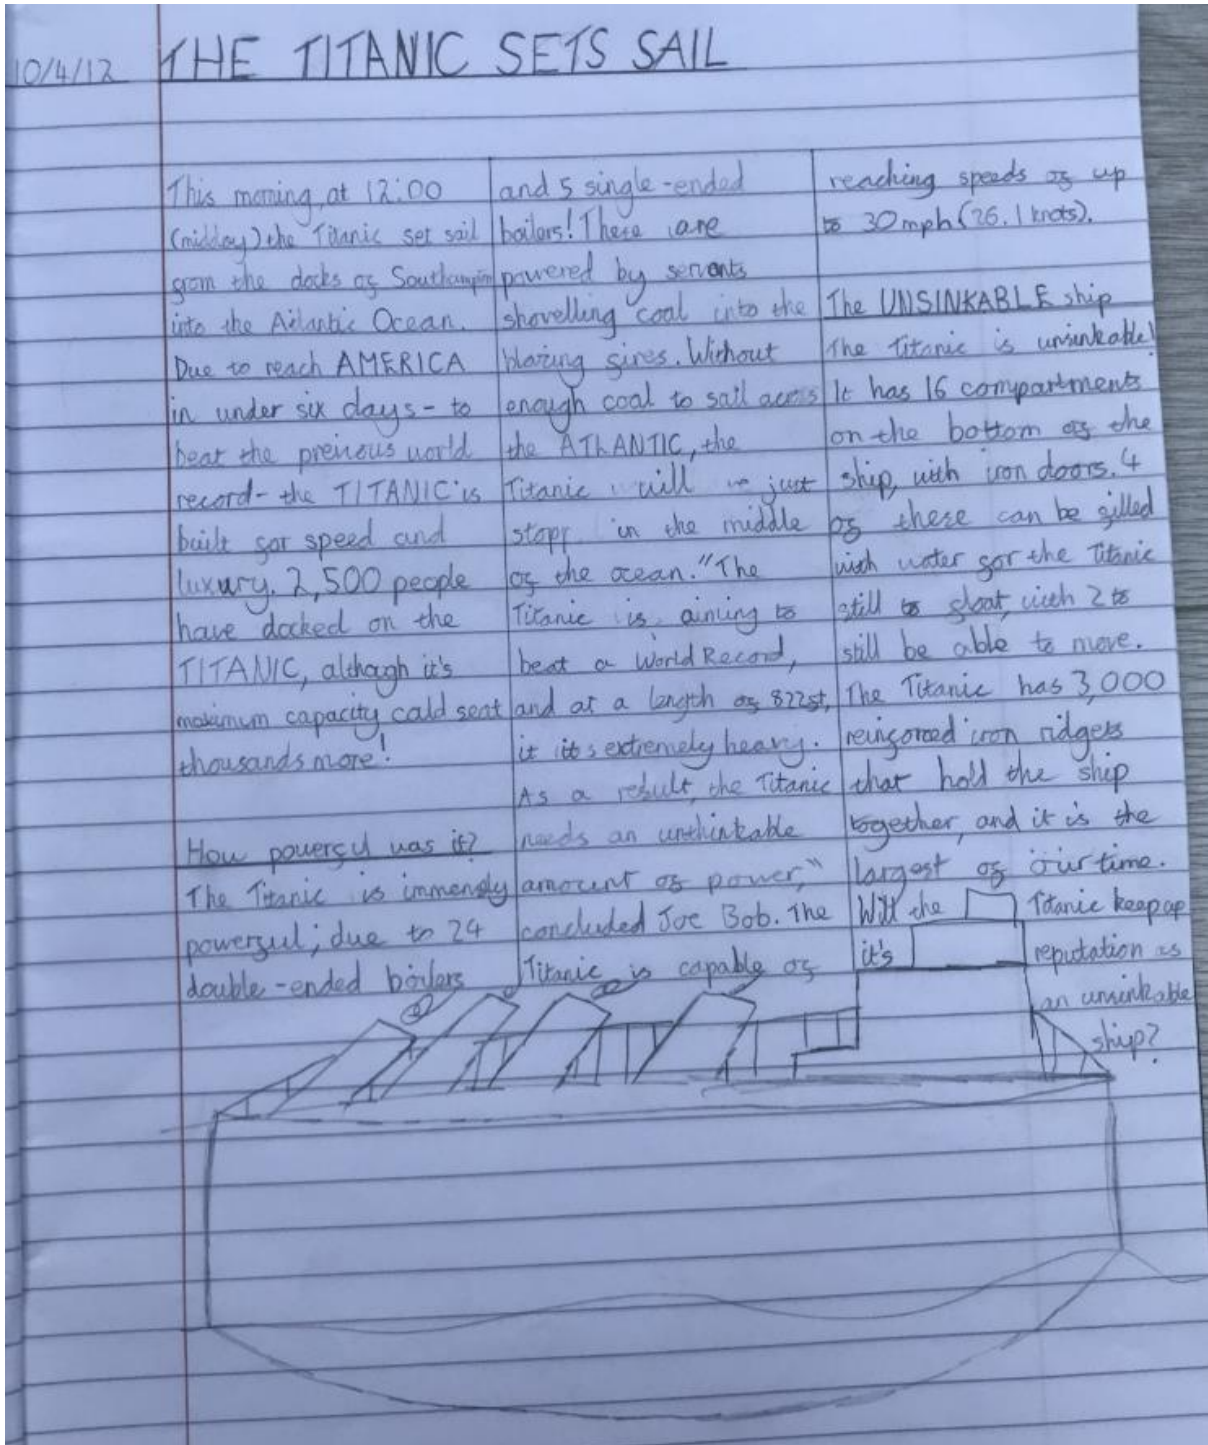 10/4/12
THE TITANIC SETS SAIL
This morning, at 12:00
(midday) the Titanic set sail
from the docks of Southampton
into the Atlantic Ocean.
Due to reach AMERICA
in under six days - to
beat the previous world
record - the TITANIC is
built for speed and
luxury. 2,500 people
have docked on the
TITANIC, although it's
maximum capacity could seat
thousands more!
How powerful was it?
The Titanic is immensly
powerful; due to 24
double-ended boilers
and 5 single-ended
boilers! These are
powered by servants
shovelling coal into the
blazing fires. Without
enough coal to sail across
the ATLANTIC, the
Titanic will just
stop in the middle
of the ocean. "The
Titanic is aiming to
beat a World Record,
and at a length of 822ft,
it is extremely heavy.
As a result, the Titanic
needs an unthinkable
amount of power,"
concluded Joe Bob. The
Titanic is capable of
reaching speeds of up
to 30mph (26.1 knots).
The UNSINKABLE ship
The Titanic is unsinkable!
It has 16 compartments
on the bottom of the
ship, with iron doors. 4
of these can be filled
with water for the Titanic
still to float, with 2 to
still be able to move.
The Titanic has 3,000
reinforced iron ridgets
that hold the ship
together, and it is the
largest of our time.
Will the Titanic keep up
it's reputation as
an unsinkable
ship?